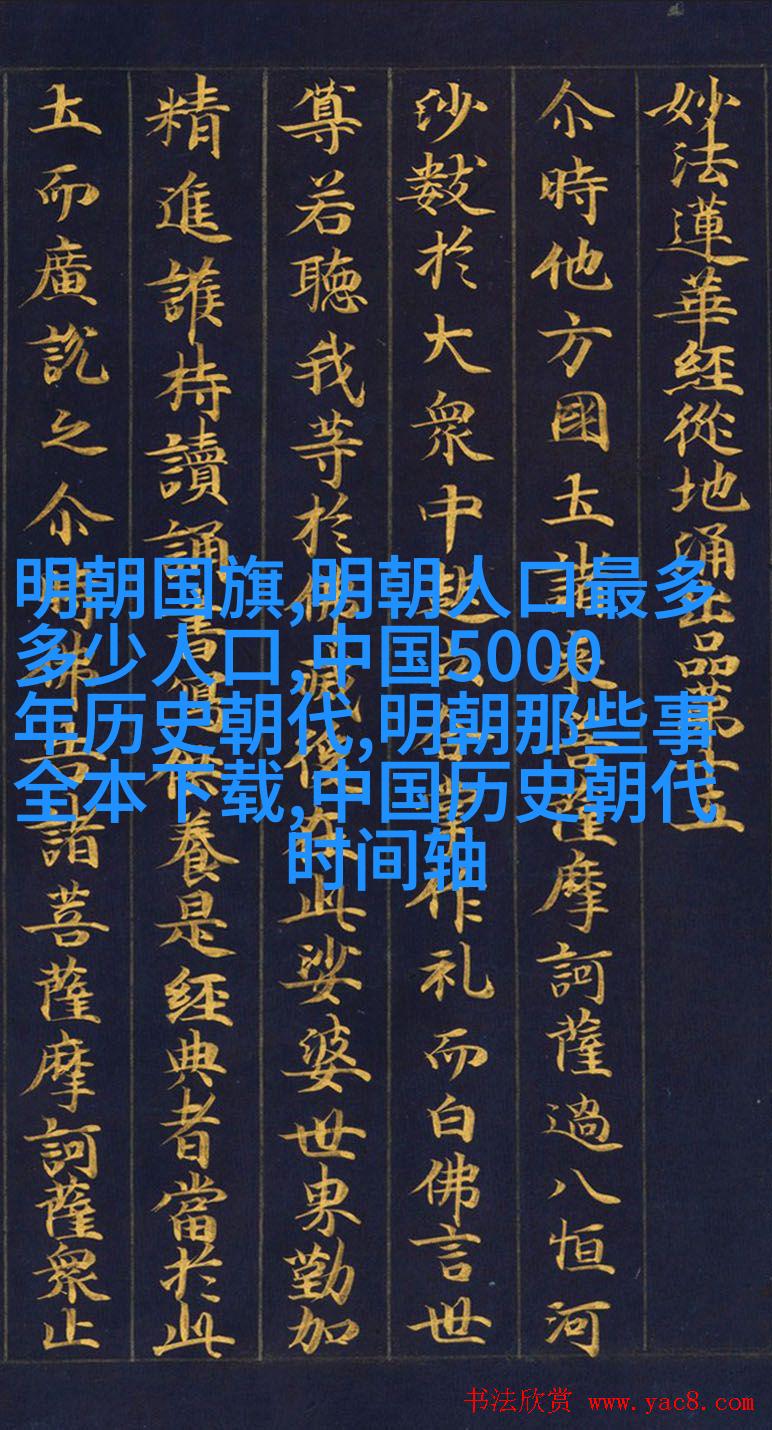 妙法蓮華経從地涌出品苐十五
尒時他方國土諸来菩薩摩訶薩過八恒河
沙數於大衆中起立合掌作礼而白佛言世
尊若聴我等於佛滅後在此娑婆世界勤加
精進護持讀誦書寫供養是経典者當於此
土而廣説之尒時佛告諸菩薩摩訶薩衆止
明朝国旗,明朝人口最多
多少人口,中国5000
年历史朝代,明朝那些事
全本下载,中国历史朝代
时间轴
书法欣赏 www.yac8.com